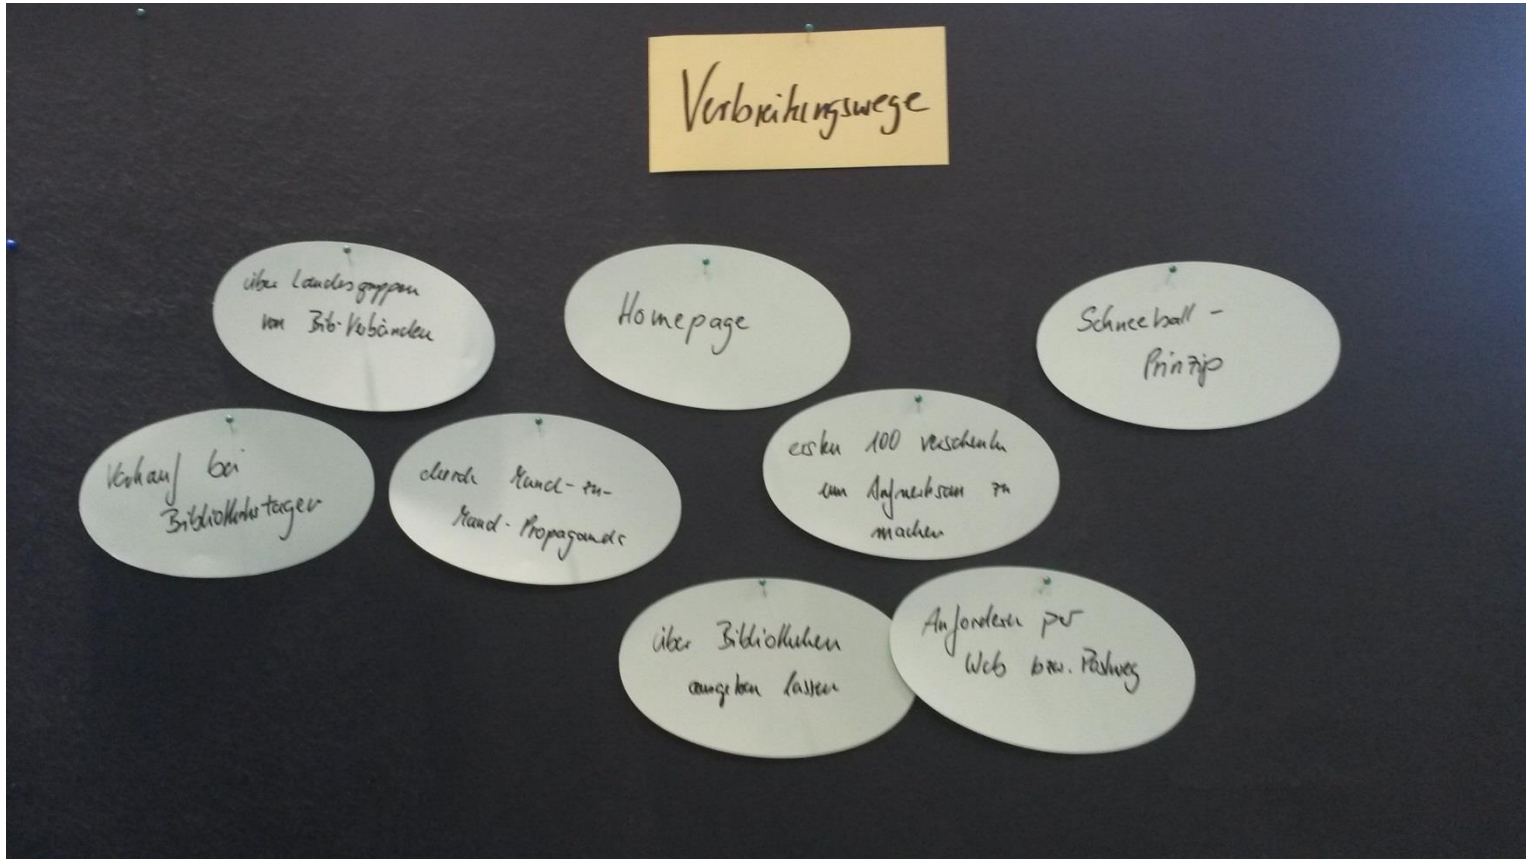 Verbreitungswege
über Landesgruppen
von Bib-Verbänden
Homepage
Schneeball-
Prinzip
Verkauf bei
Bibliothekstagen
durch Mund-zu-
Mund-Propaganda
ersten 100 verschenken
um Aufmerksam zu
machen
über Bibliotheken
ausgeben lassen
Anfordern per
Web bzw. Postweg